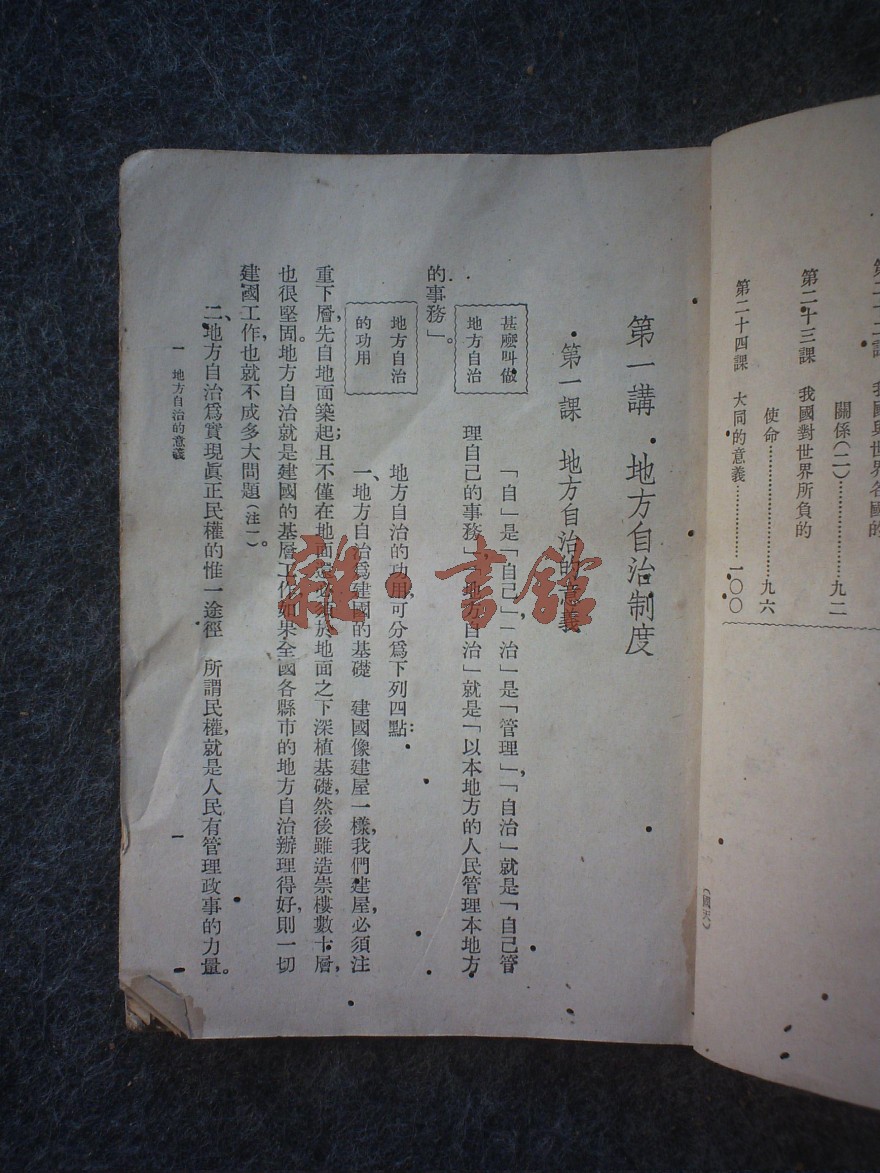 我國與世界各國的
關係(二)……………………九二
第二十三課　我國對世界所負的
使命……………………九六
第二十四課　大同的意義……………一〇〇
第一講　地方自治制度
第一課　地方自治的意義
甚麼叫做
地方自治
「自」是「自己」,「治」是「管理」,「自治」就是「自己管
理自己的事務」,「地方自治」就是「以本地方的人民管理本地方
的事務」。
地方自治
的功用
地方自治的功用,可分爲下列四點:
一、地方自治爲建國的基礎　建國像建屋一樣,我們建屋,必須注
重下層,先自地面築起;且不僅在地面,還必須於地面之下深植基礎,然後雖造崇樓數十層,
也很堅固。地方自治就是建國的基層工作,如果全國各縣市的地方自治辦理得好,則一切
建國工作,也就不成多大問題(注一)。
二、地方自治爲實現眞正民權的惟一途徑　所謂民權,就是人民有管理政事的力量。
一　地方自治的意義
一
雜·書館